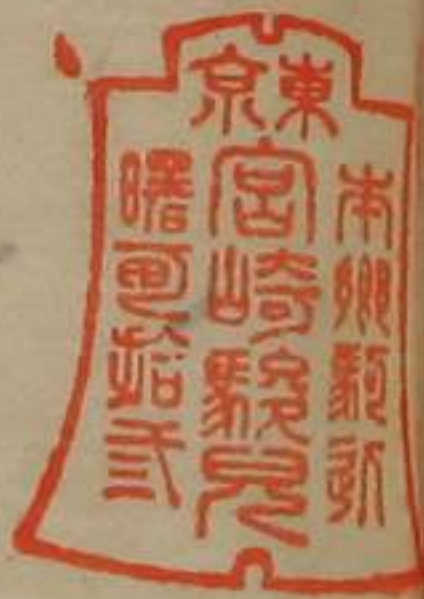 東京
本郷駒込
宮崎駿兒
曙町拾弐